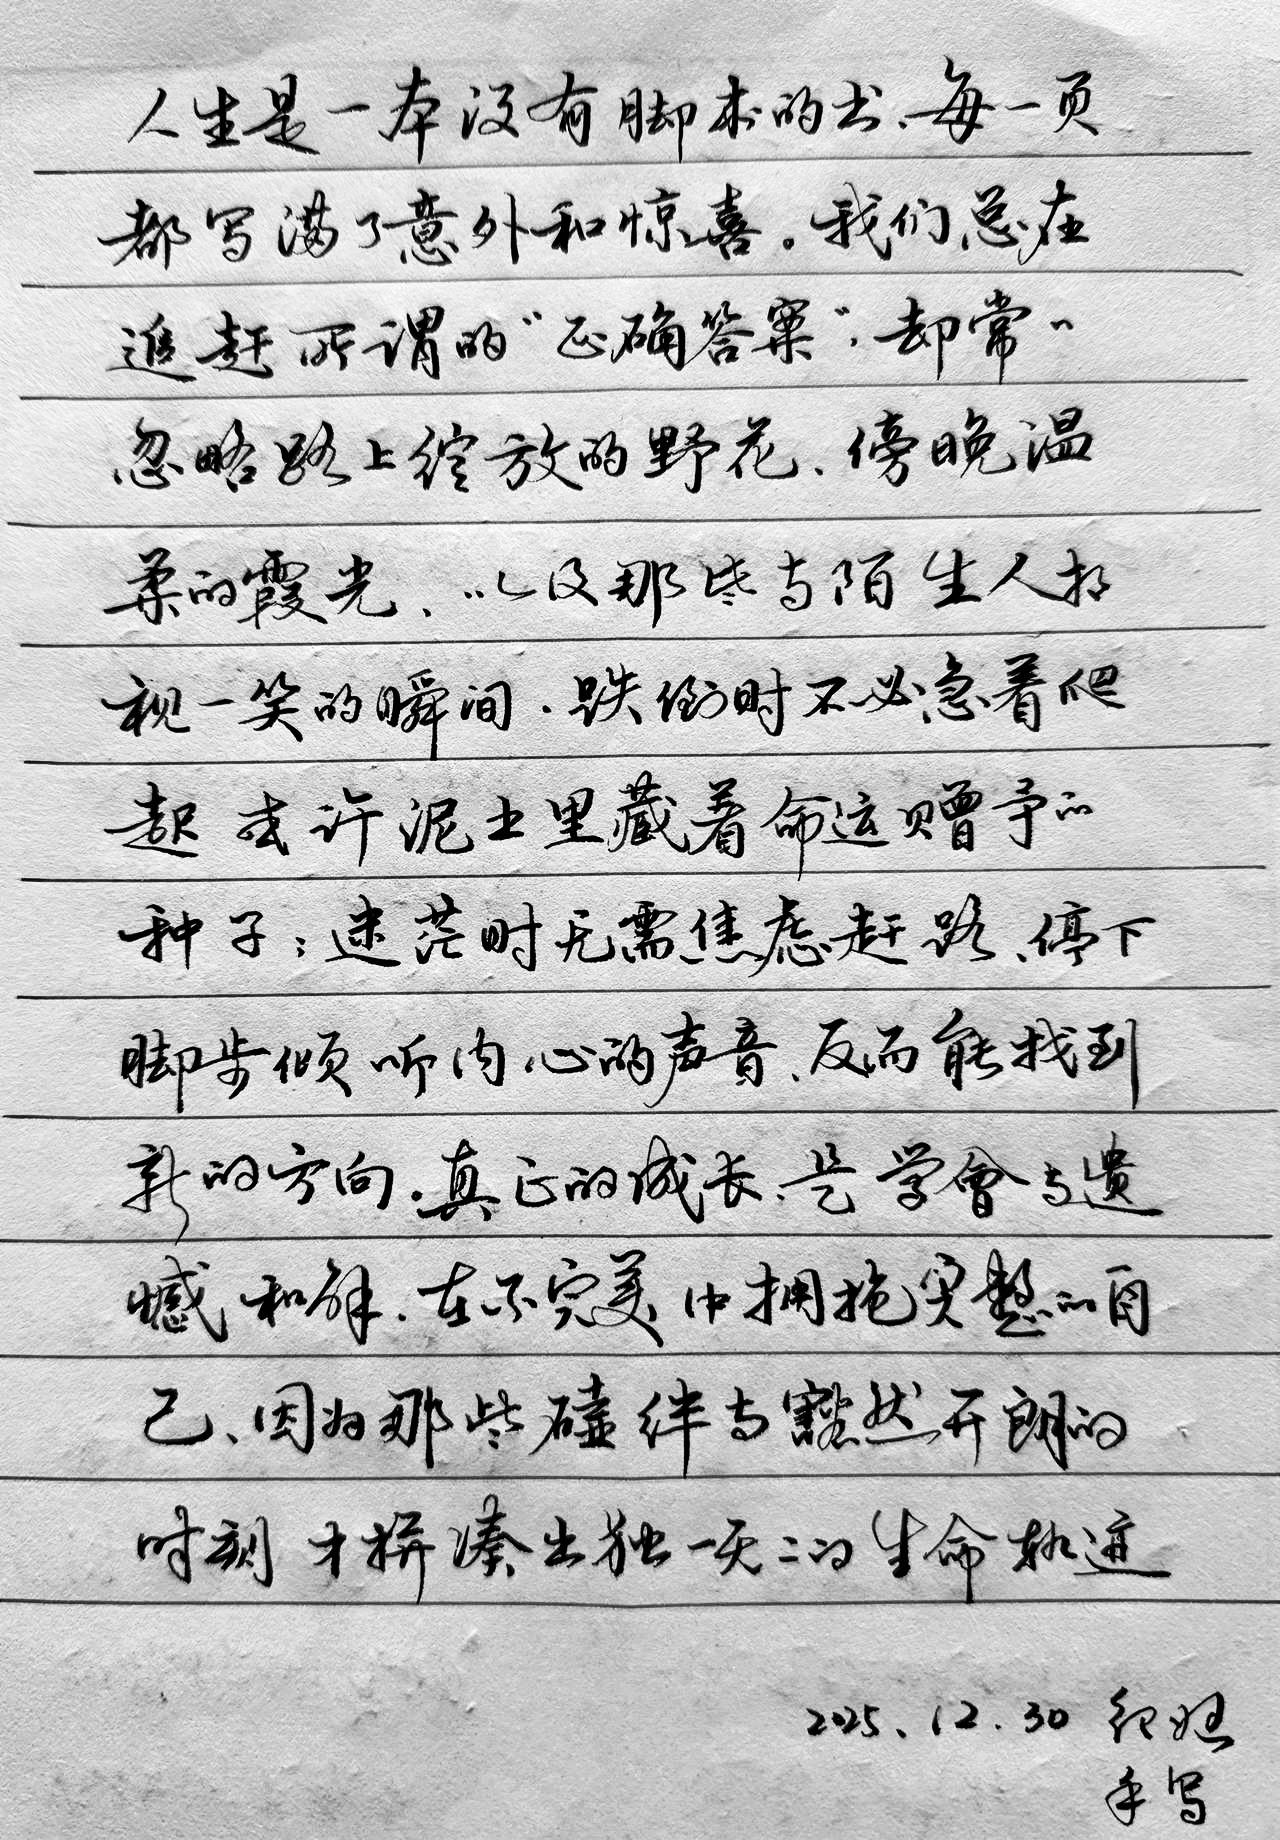 人生是一本没有脚本的书、每一页
都写满了意外和惊喜。我们总在
追赶所谓的“正确答案”，却常〃
忽略路上绽放的野花、傍晚温
柔的霞光、以及那些与陌生人相
视一笑的瞬间.跌倒时不必急着爬
起 或许泥土里藏着命运赠予的
种子；迷茫时无需焦虑赶路、停下
脚步倾听内心的声音、反而能找到
新的方向。真正的成长、是学會与遗
憾和解、在不完美中拥抱完整的自
己、因为那些磕绊与豁然开朗的
时刻 才拼凑出独一无二的生命轨迹
2025.12.30
手写